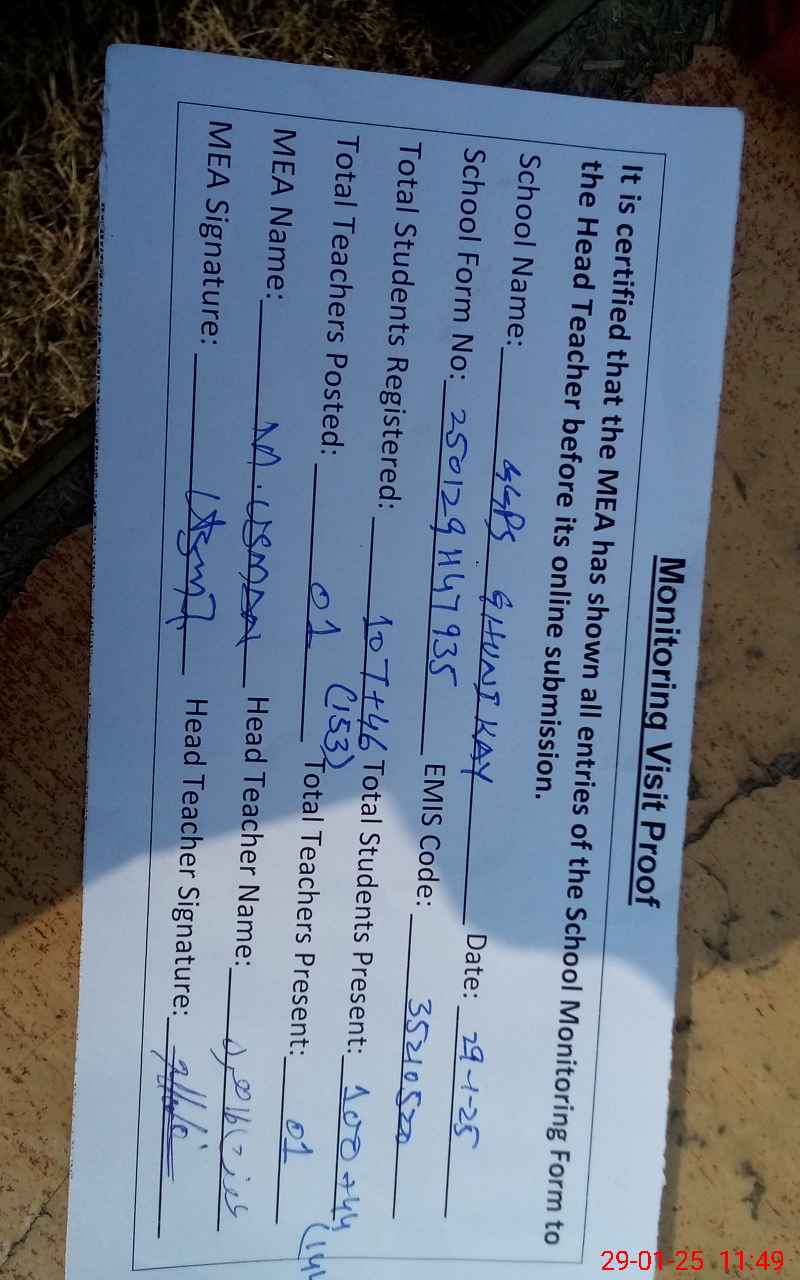 Monitoring Visit Proof
It is certified that the MEA has shown all entries of the School Monitoring Form to
the Head Teacher before its online submission.
School Name: GGPS GHUNI KAY Date: 29-1-25
School Form No: 2501291147935 EMIS Code: 35210520
Total Students Registered: 107+46 (153) Total Students Present: 100+44 (144
Total Teachers Posted: 01 Total Teachers Present: 01
MEA Name: M. USMAN Head Teacher Name:
MEA Signature: Usman Head Teacher Signature:
29-01-25 11:49